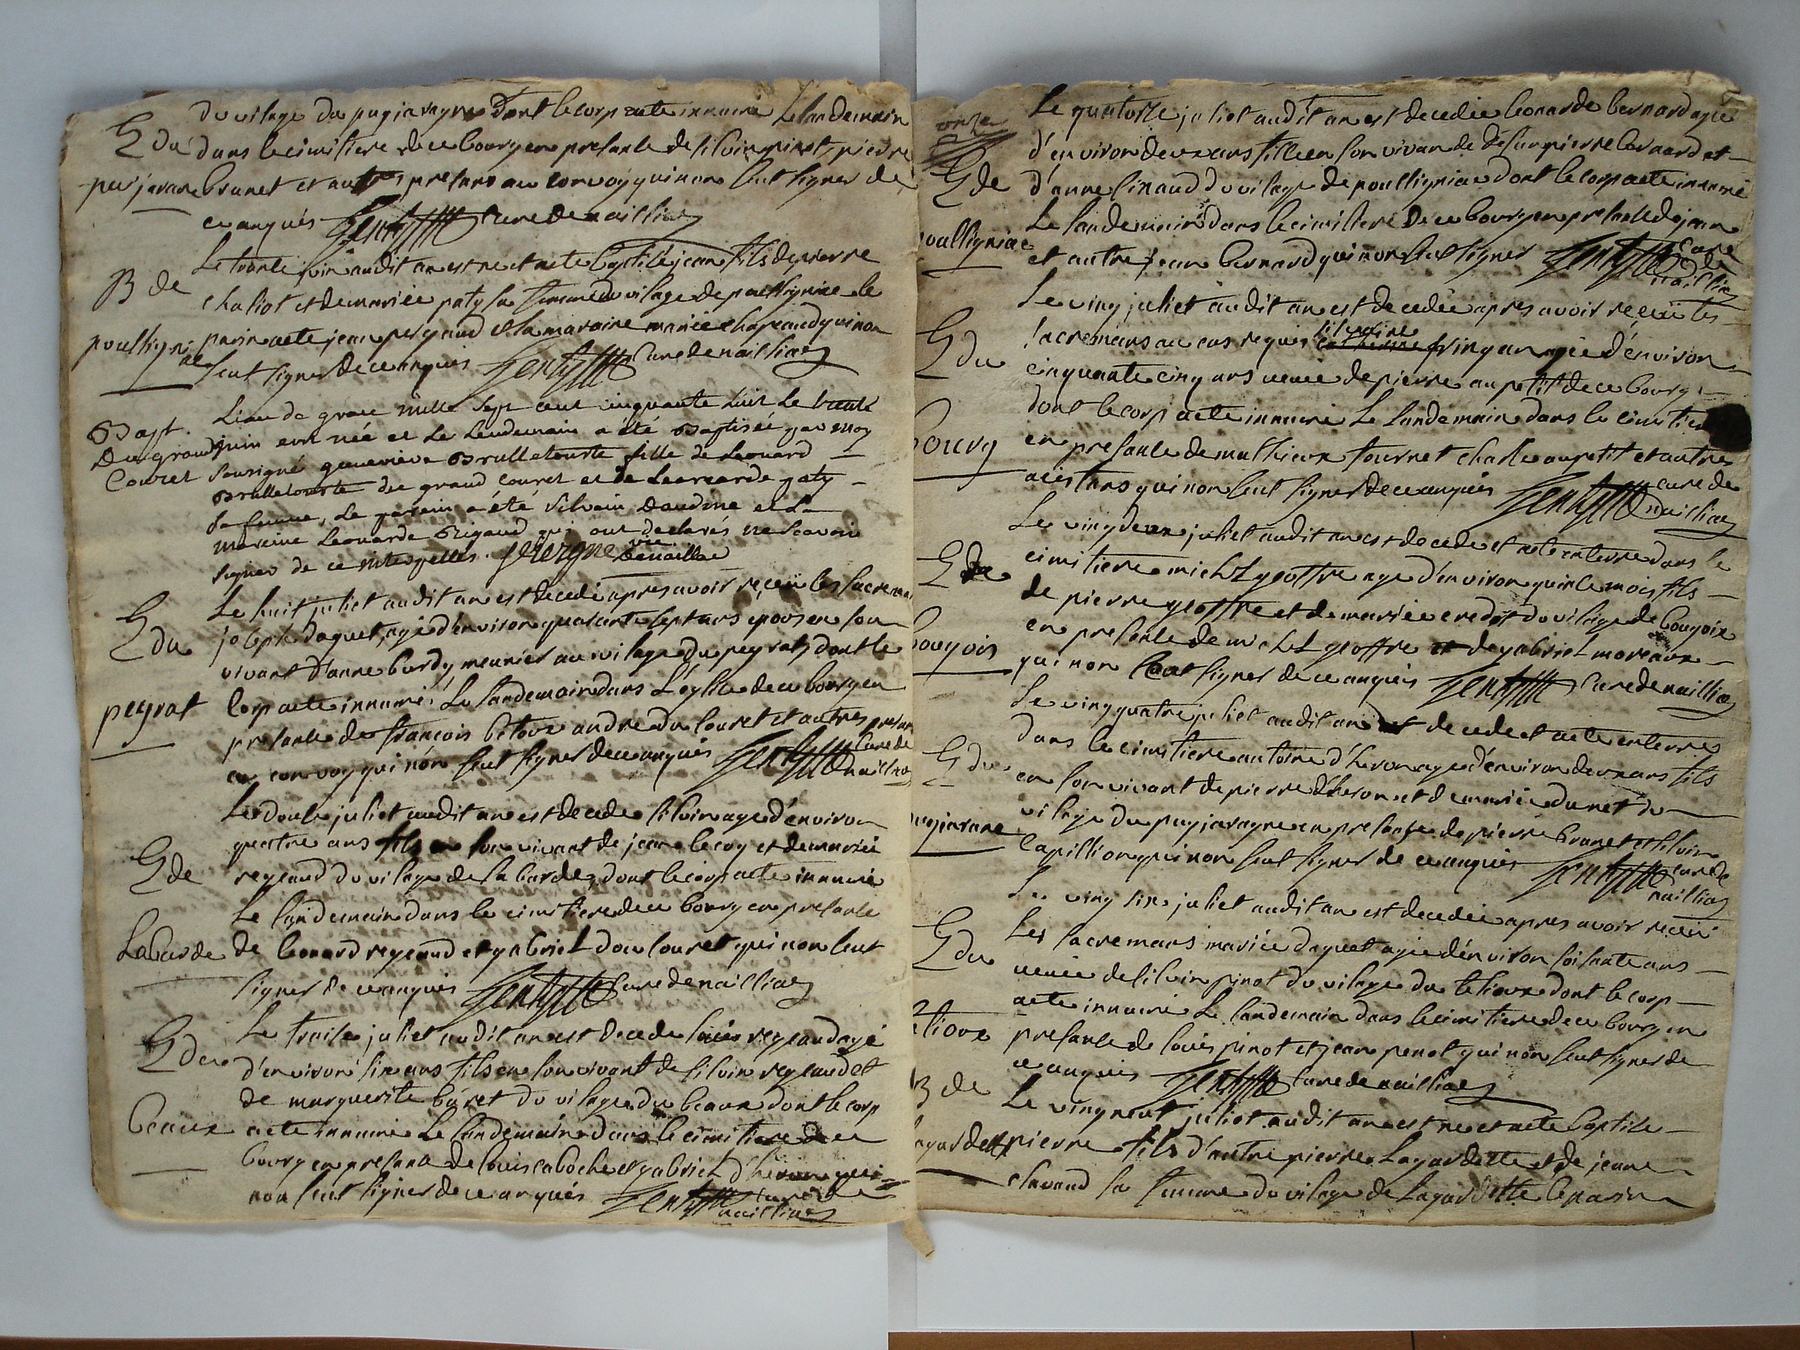 du vilage du pugjavagne dont le corp aete innumé Le landemain
E du dans le cimitiere de ce bourg en presanse de silvin pinot, pierre
pujavane brunet et autres presans au convoy qui non seut signer de
ce anquis curé de nailliac
Le trante juin audit an est ne et aete baptise jean fils de pierre
B de chaliot et de mariee paty sa famme du vilage de poulligniac le
poulligniac parin aete jean peryaud et la maraine mariee chapeaud qui non
seut signer de ce anquis curé de nailliac
Bapt. L'an de grace mille sept cent cinquante huit Le trente
Du grand juin est née et Le Lendemain a été Baptisée par moy
Couret sousigné genevieve Brulletourte fille de Leonard
Brulletourte du grand couret et de Leonarde paty
sa femme, Le parein a été Silvain Daudine et La
mareine Leonarde Rigaud qui ont declarés ne scavoir
signer de ce interpellés. vic. de naillac
Le huit juliet audit an est decede apres avoir reçeü les sacremans
E du joseph daguet, agé d'environ quarante sept ans epoux en son
vivant d'anne burdy meunier au vilage du peyrat, dont le
peyrat corp aete innumé Le landemain dans L'eglise de ce bourg en
presanse de francois betoux andre du couret et autres presans
au convoy qui non seut signer de ce anquis curé de nailliac
Le douse juliet audit an est decede silvin age d'environ
quatre ans fils en son vivant de jean lecoq et de mariee
E de regeaud du vilage de la barde, dont le corp aete innumé
Le landemain dans le cimitiere de ce bourg en presanse
Labarde de leonard regeaud et gabriel dou couret qui non seut
signer de ce anquis curé de nailliac
Le traise juliet audit an est decede louis regeaud agé
E du d'environ six ans fils en son vivant de silvin regeaud et
de marguerite buret du vilage du beaux dont le corp
beaux aete innumé Le landemain dans le cimitiere de ce
bourg en presanse de louis caboche et gabriel d'heron qui
non seut signer de ce anquis curé de nailliac
onze
Le quatorse juliet audit an est decedee leonarde bernard agee
d'environ deux ans fille en son vivan de defun pierre bernard et
E de d'anne sinaud du vilage de poulligniac dont le corp aete innumé
Le landemain dans le cimitiere de ce bourg en presanse de jean
poulligniac et autre jean bernard qui non seut signer curé de nailliac
Le ving juliet audit an est decedee apres avoir reçeü les
E du sacremans au cas requis silvaine vingan agee d'environ
cinquante cinq ans veuve de pierre aupetit de ce bourg
bourg dont le corp aete innumé Le landemain dans le cimitiere
en presanse de mathieux fournet charle aupetit et autres
assistans qui non seut signer de ce anquis curé de nailliac
Le ving deux juliet audit an est decede et aete enterre dans le
E de cimitiere michel geoffre age d'environ quinse mois fils
de pierre geoffre et de mariee credot du vilage de bougoix
bougois en presanse de michel geoffre et de gabriel moreaux
qui non seut signer de ce anquis curé de nailliac
Le ving quatre juliet audit an est decede et aete enterre
E du dans le cimitiere antoine d'heron age d'environ deux ans fils
en son vivant de pierre d'heron et de mariee dunet du
pugjavane vilage du pugjavagne en presanse de pierre brunet et silvin
capillion qui non seut signer de ce anquis curé de nailliac
Le ving six juliet audit an est decedee apres avoir reçeü
E du les sacremans mariee daguet agee d'environ soisante ans
veuve de silvin pinot du vilage du telioux dont le corp
telioux aete innumé Le landemain dans le cimitiere de ce bourg en
presanse de louis pinot et jean penot qui non seut signer de
ce anquis curé de nailliac
B de Le ving neuf juliet audit an est ne et aete baptise
Lagardette pierre fils d'autre pierre Lagardette et de jeane
clavaud sa famme du vilage de Lagardette le parin